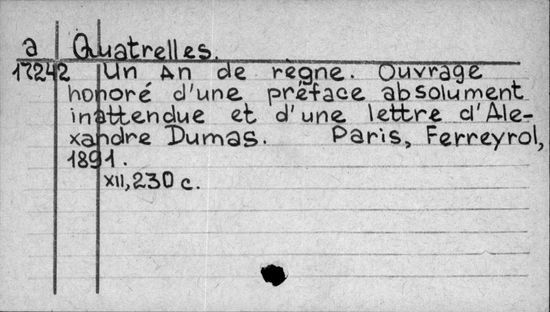 a Quatrelles.
17242 Un An de règne. Ouvrage
honoré d'une préface absolument
inattendue et d'une lettre d'Ale-
xandre Dumas. Paris, Ferreyrol,
1891.
XII, 230 c.